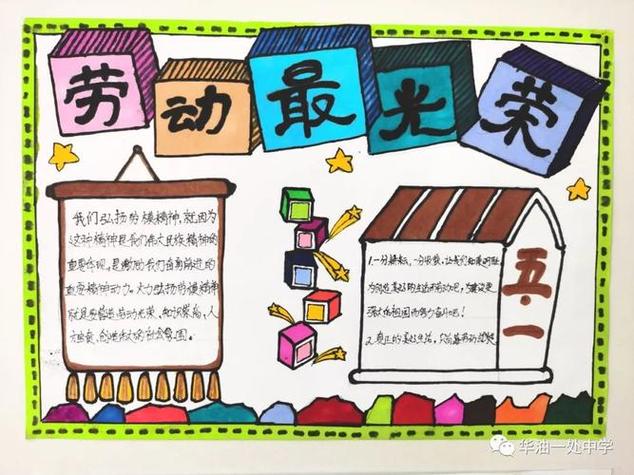 劳动最光荣
我们弘扬劳模精神，就因为
这种精神是我们伟大民族精神的
重要体现，是激励我们奋勇前进的
重要精神动力。大力弘扬劳模精神
就是要营造劳动光荣、知识崇高、人
创造伟大的社会氛围。
1.一分耕耘，一分收获，让我们
为创造美好的生活而劳动吧，为建设更
强大的祖国而努力奋斗吧！
2.真正的美好生活，只有靠劳动
五·一
华油一处中学